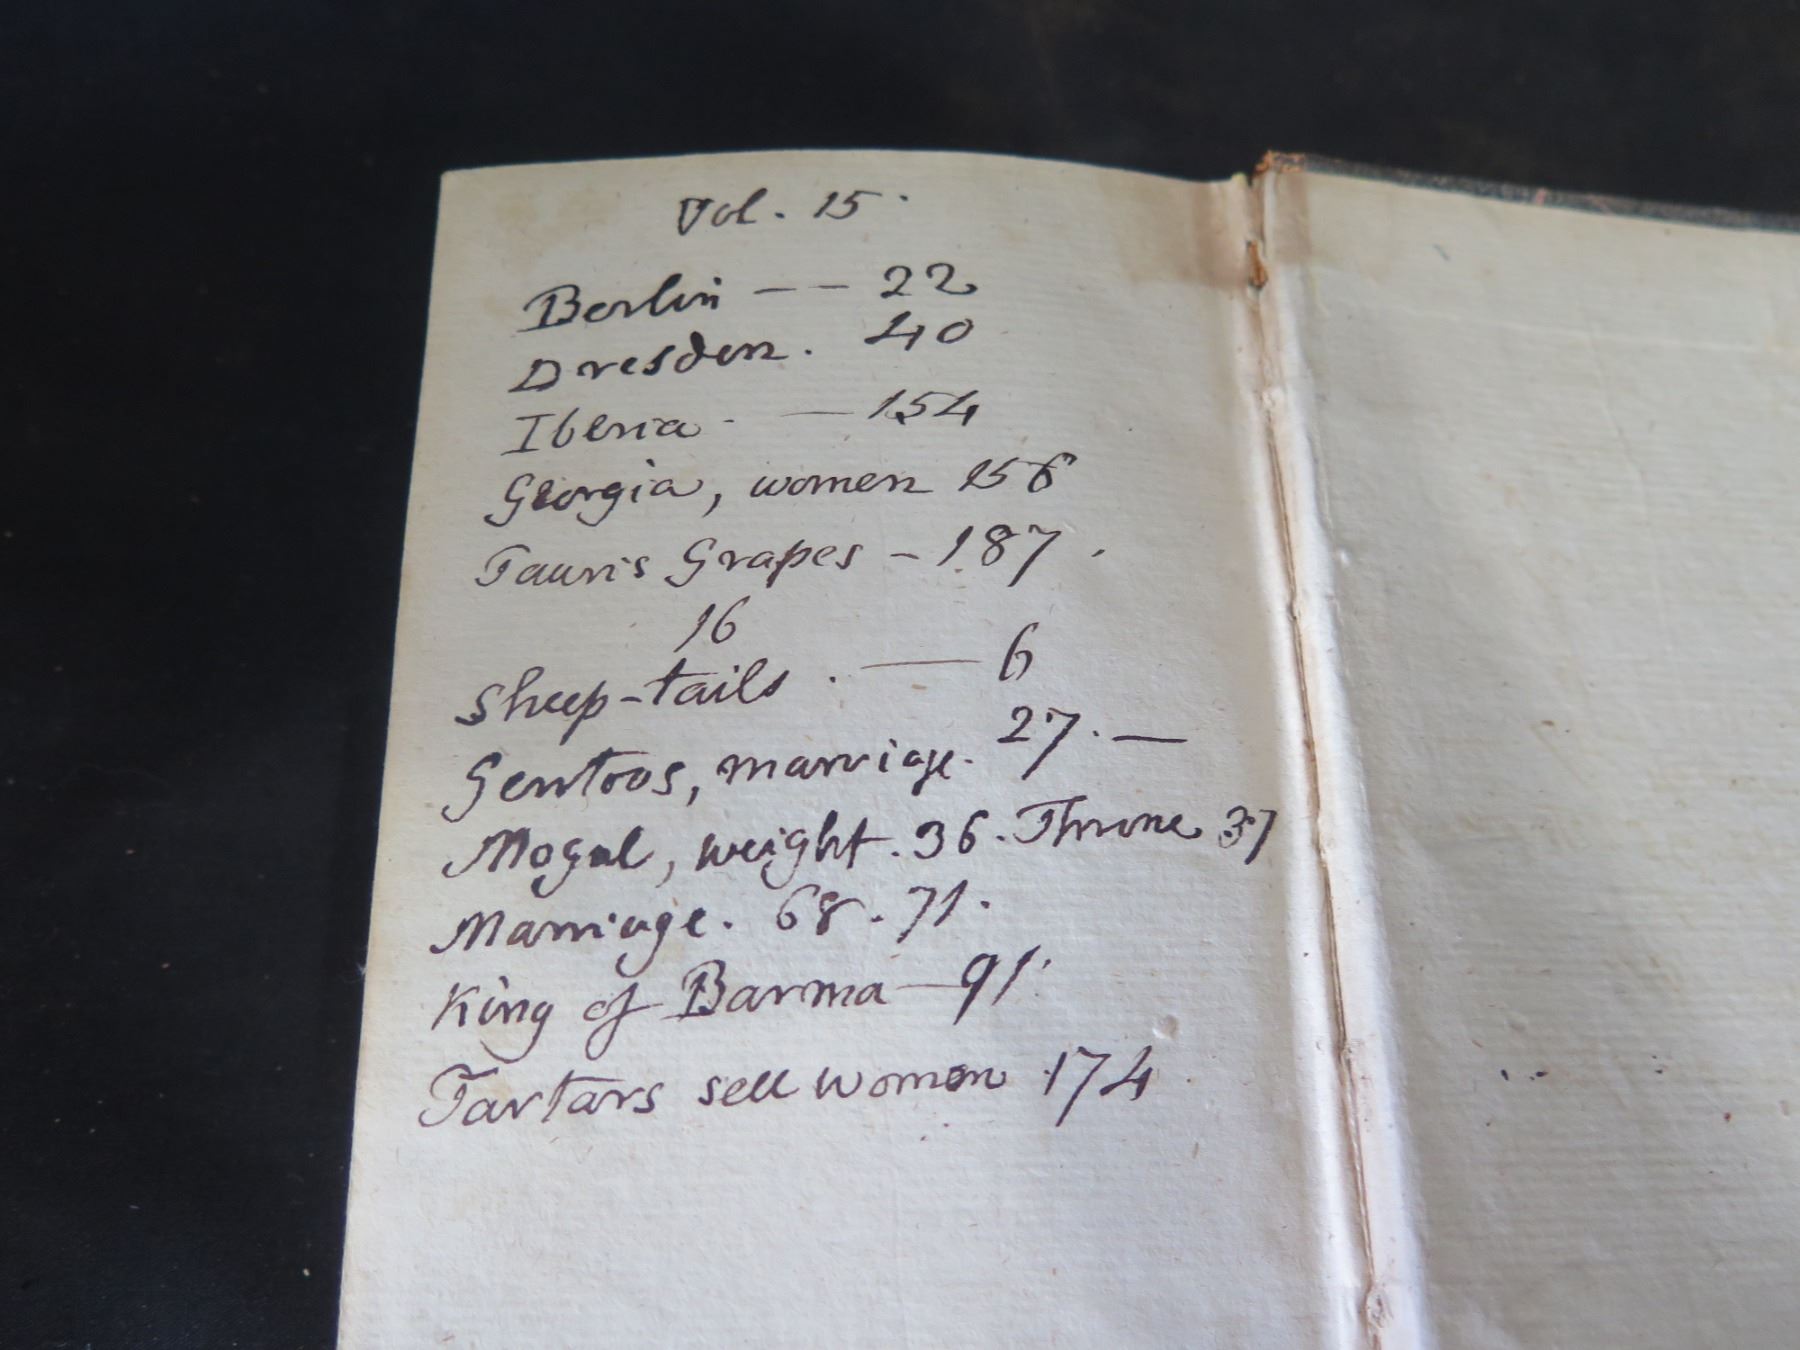 Vol. 15.
Berlin -- 22
Dresden. 40
Iberia - — 154
Georgia, women 156
Tauris Grapes - 187.
16
Sheep-tails . — 6
Gentoos, marriage. 27. —
Mogul, weight. 36. Throne 37
Marriage. 68. 71.
King of Barma — 91.
Tartars sell women 174